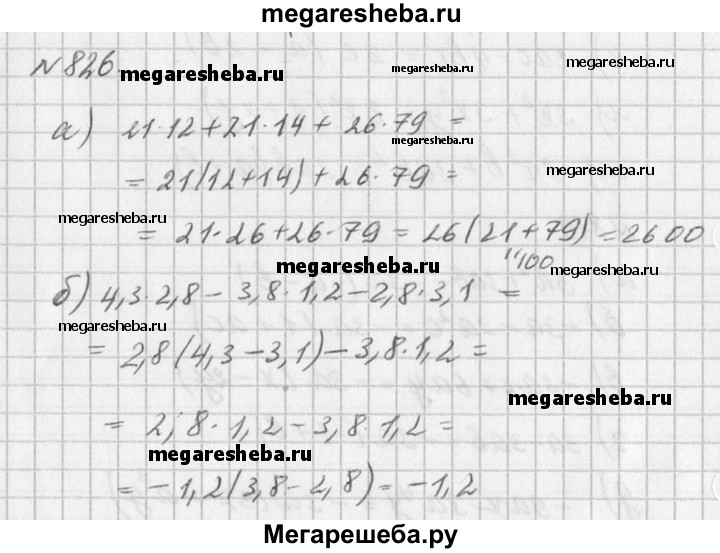 megaresheba.ru
№826
megaresheba.ru
megaresheba.ru
megaresheba.ru
а) 21·12+21·14+26·79=
megaresheba.ru
=21(12+14)+26·79=
megaresheba.ru
megaresheba.ru
=21·26+26·79=26(21+79)=2600
"100
megaresheba.ru
megaresheba.ru
б) 4,3·2,8-3,8·1,2-2,8·3,1=
megaresheba.ru
=2,8(4,3-3,1)-3,8·1,2=
megaresheba.ru
=2,8·1,2-3,8·1,2=
megaresheba.ru
megaresheba.ru
=-1,2(3,8-2,8)=-1,2
Мегарешеба.ру